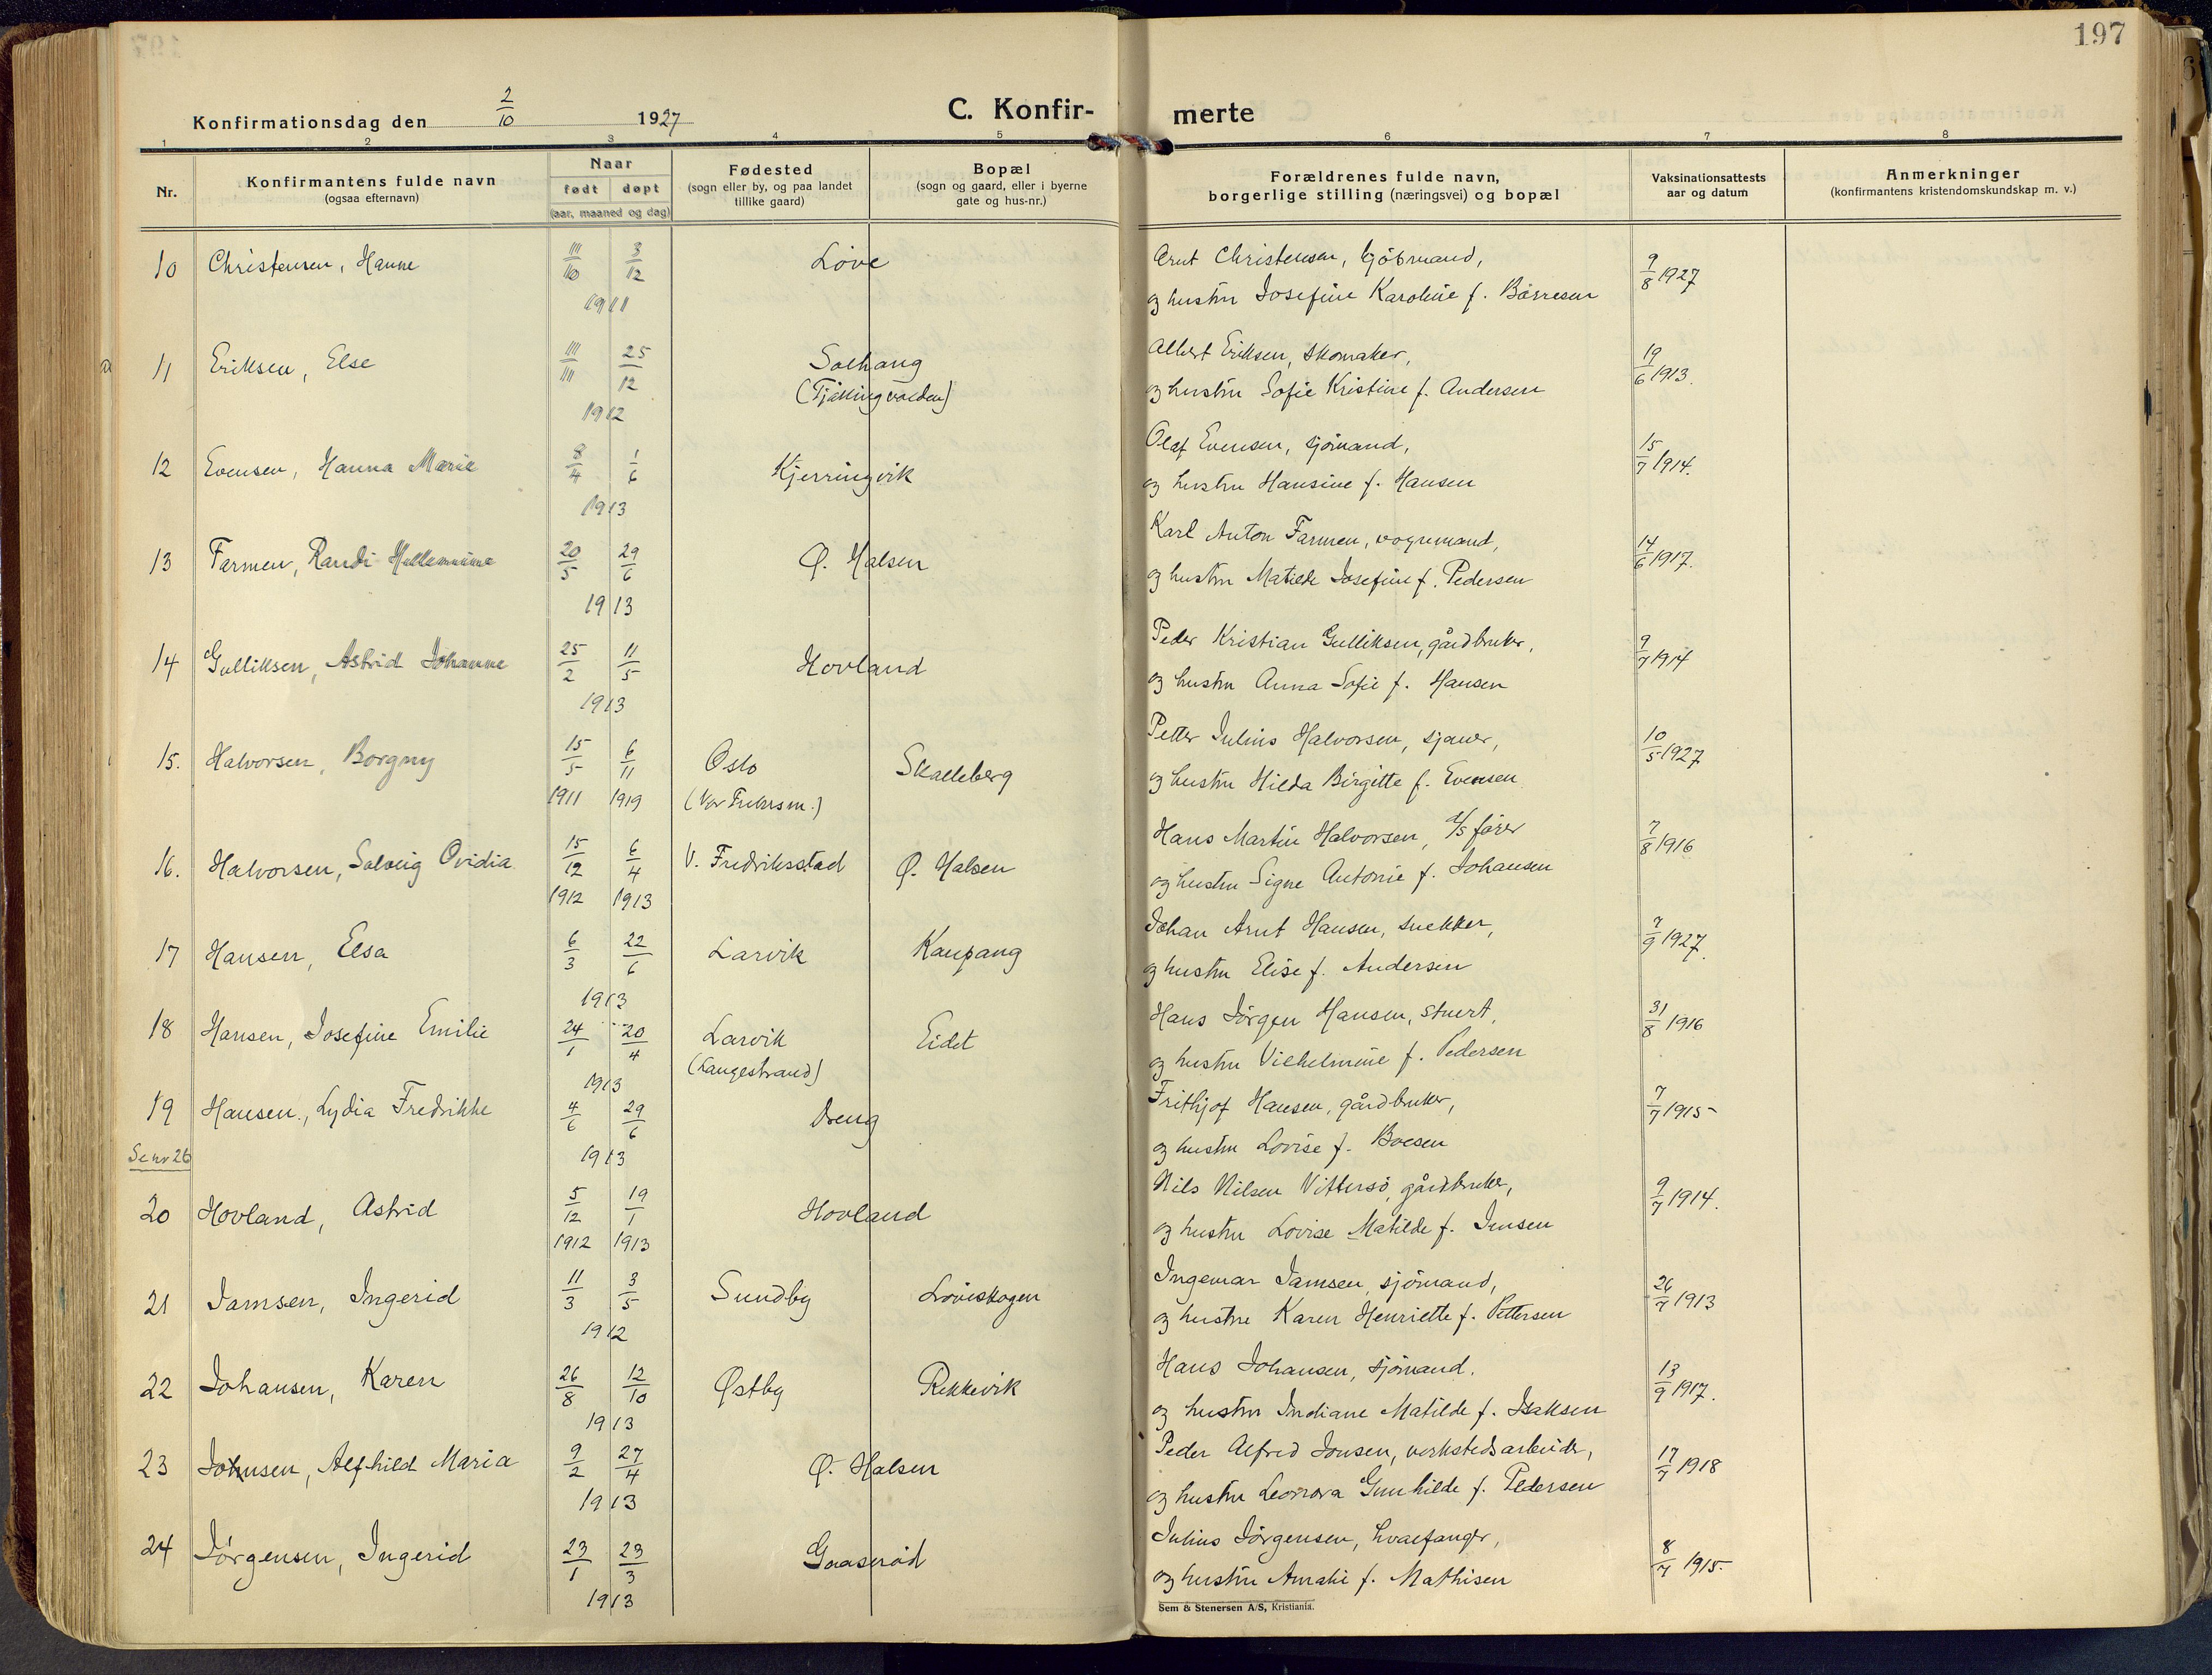 197
Konfirmationsdag den 2/10 1927
C. Konfirmerte
1 2 3 4 5 6 7 8
Nr.
Konfirmantens fulde navn
(ogsaa efternavn)
Naar
født døpt
(aar, maaned og dag)
Fødested
(sogn eller by, og paa landet
tillike gaard)
Bopæl
(sogn og gaard, eller i byerne
gate og hus-nr.)
Forældrenes fulde navn,
borgerlige stilling (næringsvei) og bopæl
Vaksinationsattests
aar og datum
Anmerkninger
(konfirmantens kristendomskundskap m. v.)
10 Christensen, Hanne 3/12 Løve Arnt Christensen, 9/8 1927
1911 og hustru Josefine Karoline f. Børresen
11 Eriksen, Else 25/12 Solhang Albert Eriksen, skomaker, 19/6 1913.
1912 og hustru Sofie Kristine f. Andersen
12 Evensen, Hanna Marie 8/4 1/6 Kjerringvik Olaf Evensen, sjömand, 15/7 1914.
1913 og hustru Hansine f. Hansen
13 Farmen, Randi 20/5 29/6 Ø. Halsen Karl Anton Farmen, vognmand, 14/6 1917.
1913 og hustru Matilde Josefine f. Pedersen
14 Gulliksen, Astrid Johanne 25/2 11/5 Hovland Peder Kristian Gulliksen, gårdbruker, 9/7 1914
1913 og hustru Anna Sofie f. Hansen
15. Halvorsen, Borgny 15/5 6/11 Oslo Skalleberg Petter Julius Halvorsen, sjauer, 10/5 1927
1911 1919 (Vor Frelsers m.) og hustru Hilda Birgitte f. Evensen
16. Halvorsen, Solveig Ovidia 15/12 6/4 V. Fredriksstad Ø. Halsen Hans Martin Halvorsen, fører 7/8 1916
1912 1913 og hustru Signe Antonie f. Johansen
17 Hansen, Elsa 6/3 22/6 Larvik Kaupang Johan Arnt Hansen, snekker, 7/9 1927.
1913 og hustru Elise f. Andersen
18 Hansen, Josefine Emilie 24/1 20/4 Larvik Eidet Hans Jörgen Hansen, stuert, 31/8 1916
1913 (Langestrand) og hustru Vilhelmine f. Pedersen
19 Hansen, Lydia Fredrikke 4/6 29/6 Dreng Frithjof Hansen, gårdbruker, 7/7 1915
Se nr 26 1913 og hustru Lovise f. Boesen
20 Hovland, Astrid 5/12 19/1 Hovland Nils Nilsen Vittersö, gårdbruker, 9/7 1914.
1912 1913 og hustru Lovise Matilde f. Jensen
21 Jamsen, Ingerid 11/3 3/5 Sundby Löveskogen Ingemar Jamsen, sjömand, 26/7 1913
1912 og hustru Karen Henriette f. Pettersen
22 Johansen, Karen 26/8 12/10 Østby Rekkevik Hans Johansen, sjömand. 13/9 1917.
1913 og hustru Indiane Matilde f. Isaksen
23 Jonsen, Alfhild Maria 9/2 27/4 Ø. Halsen Peder Alfred Jonsen, verkstedsarbeider, 17/7 1918
1913 og hustru Leonora Gunhilde f. Pedersen
24 Jörgensen, Ingerid 23/1 23/3 Gaaserød Julius Jörgensen, hvalfanger, 8/7 1915.
1913 og hustru Amalie f. Mathisen
Sem & Stenersen A/S, Kristiania.